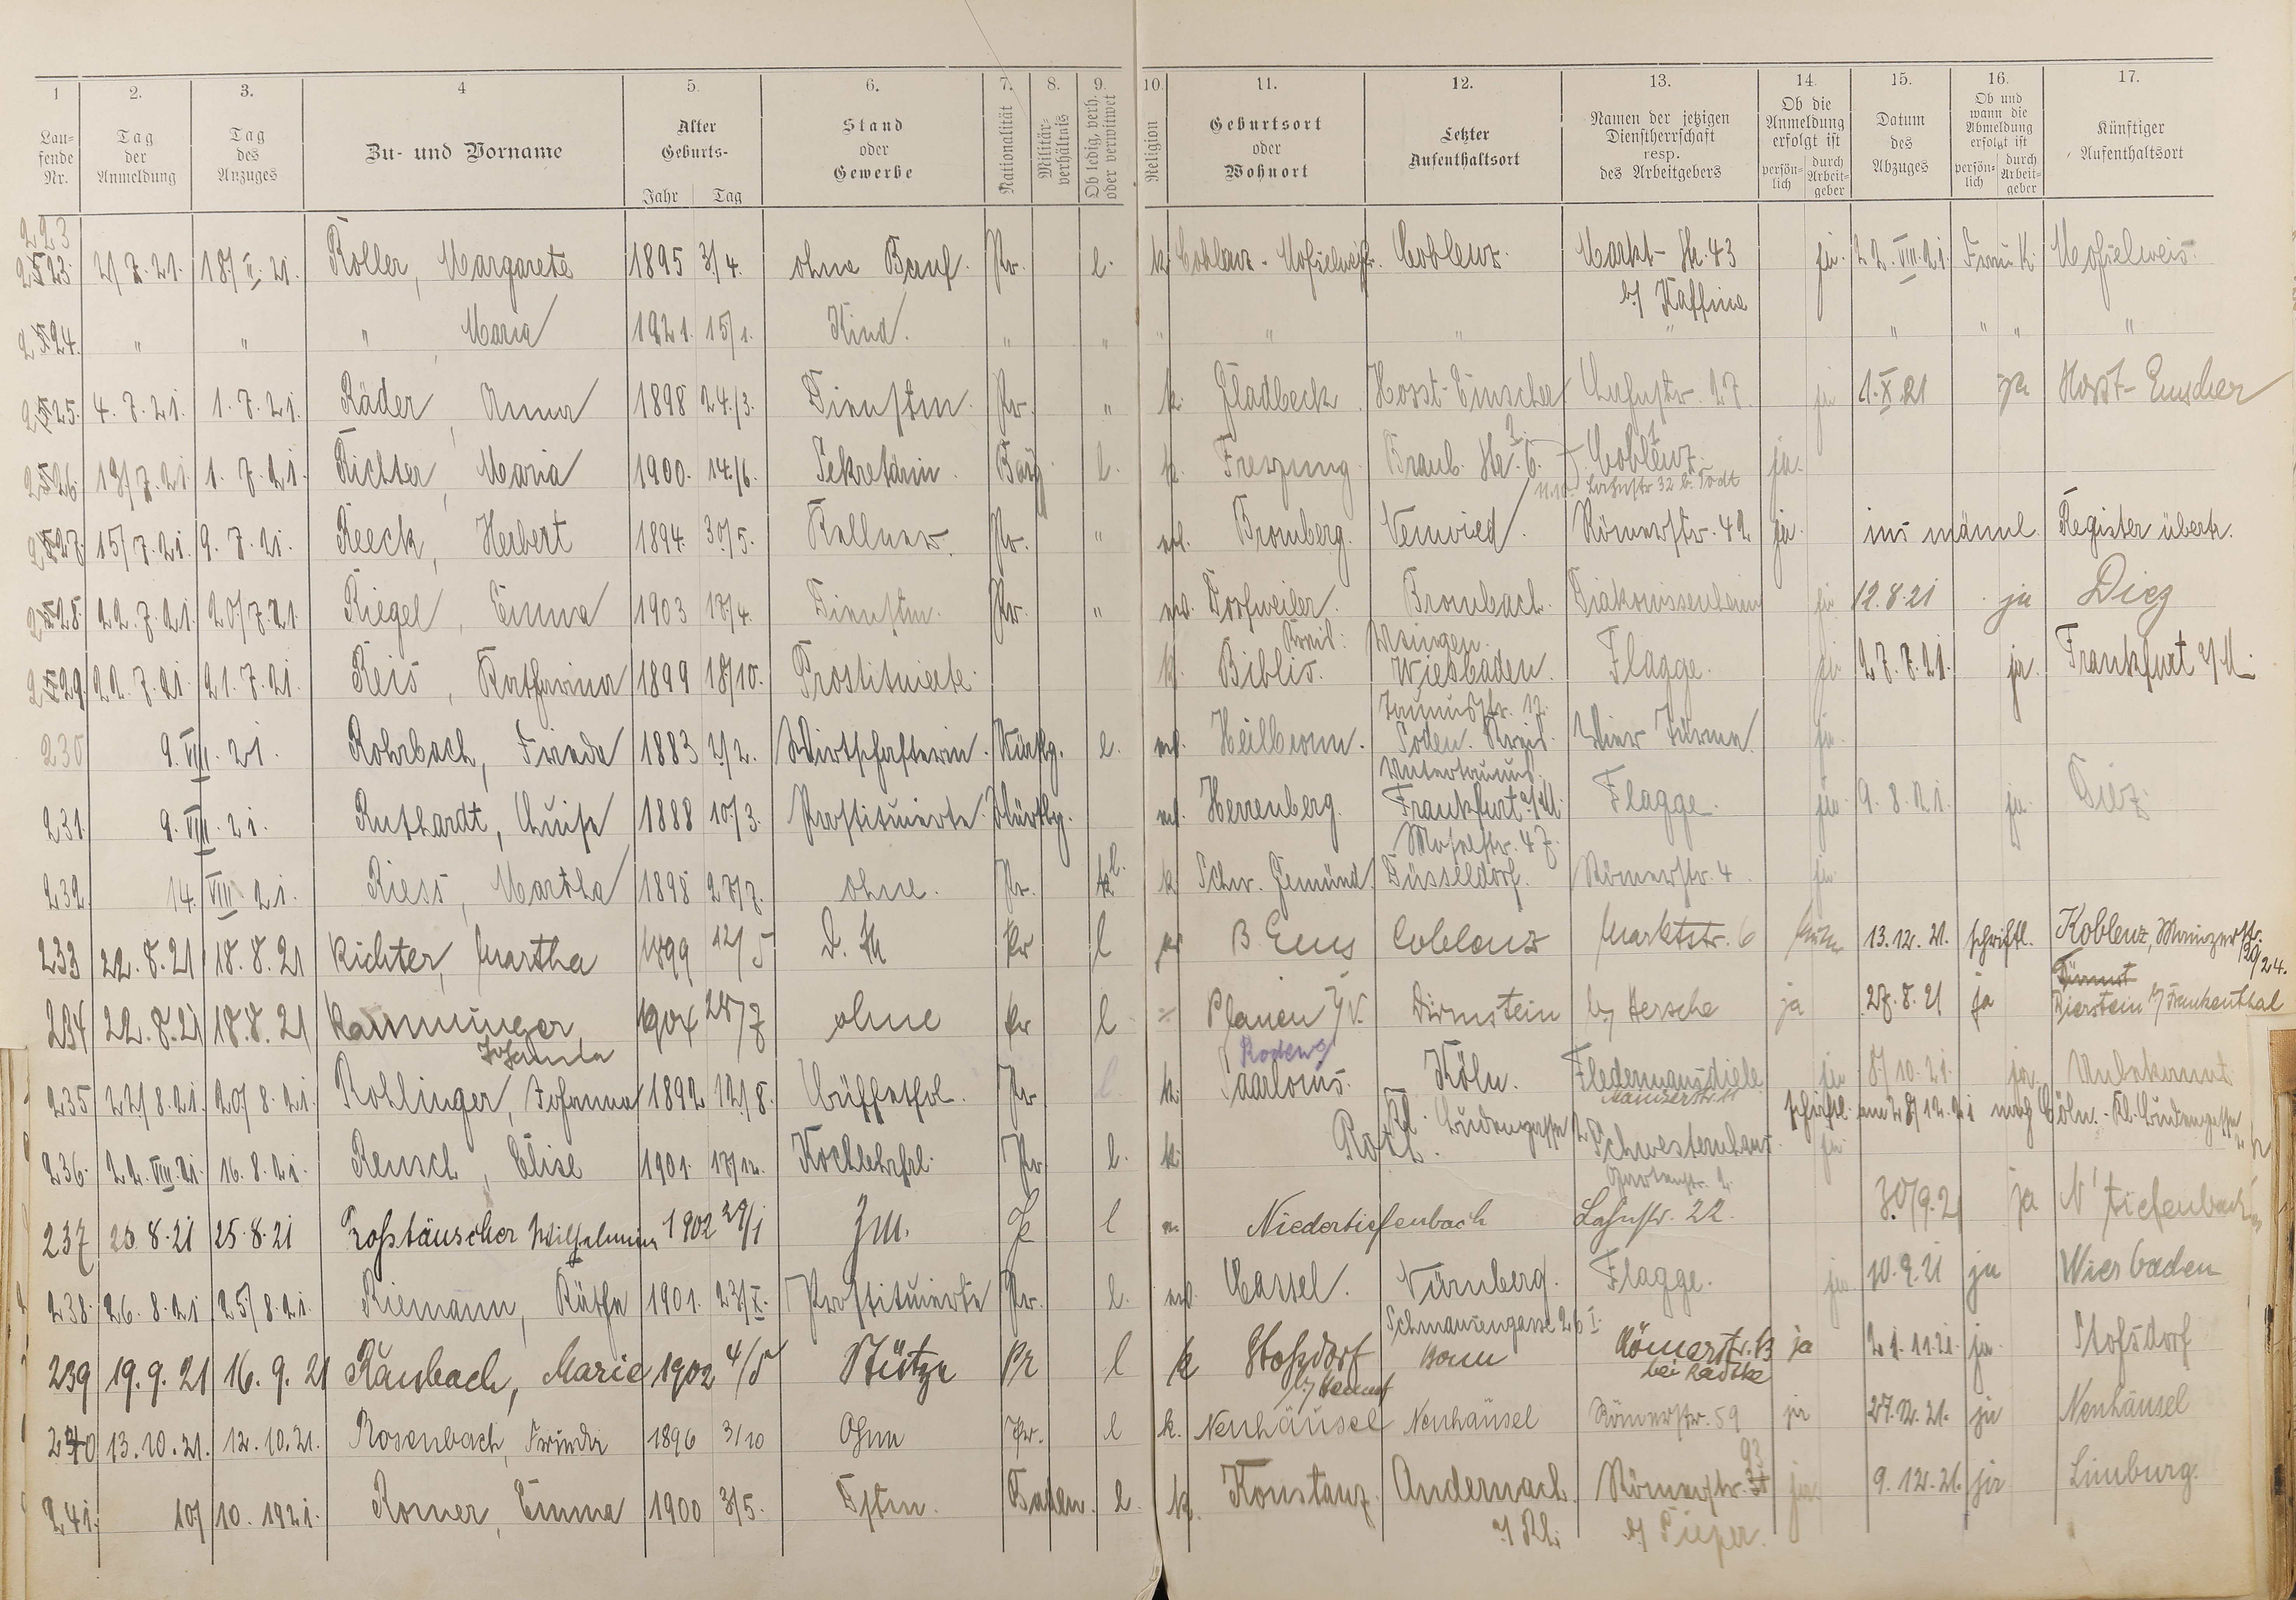 1 2. 3. 4 5. 6. 7. 8. 9. 10. 11. 12. 13. 14. 15. 16. 17.
Lau-fende Nr. Tag der Anmeldung Tag des Anzuges Zu- und Vorname Alter Geburts- Jahr Tag Stand oder Gewerbe Nationalität Militär-verhältnis Ob ledig, verh. oder verwitwet Religion Geburtsort oder Wohnort Letzter Aufenthaltsort Namen der jetzigen Dienstherrschaft resp. des Arbeitgebers Ob die Anmeldung erfolgt ist persön-lich durch Arbeit-geber Datum des Abzuges Ob und wann die Abmeldung erfolgt ist persön-lich durch Arbeit-geber Künftiger Aufenthaltsort
223
2/7.21. 18/V.21. Roller, Margarete 1895 3/4. ohne Beruf. Pr. l. k Coblenz- Coblenz. Markt- 43 ja. 22.VIII.21. Moselweis.
b/ Kaffine
24. " " " Maria 1921. 15/1. Kind. " " " " " " " " " "
25. 4.7.21. 1.7.21. Räder, Anna 1898 24./3. Dienstm. Pr. " k. Gladbeck. Horst-Emscher Lahnstr. 27. ja 1.X.21 ja Horst-Emscher
26. 13/7.21. 1.7.21. Richter, Maria 1900. 14./6. Sekretärin. Bay. l. k. Freyung. Coblenz. ja.
Lahnstr 32 b. Todt
27. 15/7.21. 9.7.21. Reeck, Herbert 1894. 30/5. Kellner. Pr. " ev. Bromberg. Neuwied. Römerstr. 42 ja. ins männl. Register übertr.
28. 22.7.21. 20/7.21. Riegel, Emma 1903 17/4. Dienstm. Pr. " ev. Dorfweiler. Brombach. Diakonissenheim ja 12.8.21 ja Diez
Kreis: Usingen.
29. 22.7.21. 21.7.21. Reis, Katharina 1899 18/10. Prostituierte. k. Biblis. Wiesbaden. Flagge. ja. 27.7.21. ja. Frankfurt a/M.
Taunusstr. 12.
230 9.VIII.21. Rohrbach, Frieda 1883 2/2. Wirtschafterin. Württg. l. ev. Heilbronn. Soden. Kreis. Vier Türme ja.
Untertaunus.
231. 9.VIII.21. Ruthardt, Luise 1888 10./3. Prostituierte. Württbg. ev. Herrenberg. Frankfurt a/M. Flagge. ja. 9.8.21. ja. Diez.
Moselstr. 47.
232. 14.VIII.21. Riess, Martha 1898 27/7. ohne. Pr. l. k Schw. Gemünd. Düsseldorf. Römerstr. 4. ja.
233 22.8.21 18.8.21 Richter, Martha 1899 12/5 Pr l B. Ems Coblenz Marktstr. 6 13.12.21. schriftl. Koblenz, Mainzerstr.
129/24.
234 22.8.21 18.8.21 Ramminger 1904 28/7 ohne Pr l = Plauen i/V. Dirmstein b/ Hersche ja 27.8.21 ja Dierstein b/ Frankenthal
Johanna
235 22/8.21. 20/8.21. Rohlinger, Johanna 1892 12/8. Büffetfrl. Pr k. Saarlouis. Köln. Fledermausdiele ja 8/10.21. ja. Unbekannt
schriftl. am 28/12.21 nach Cöln.
236. 22.VIII.21. 16.8.21. Rensch, Elise 1901. 17/12. Kochlehrfrl. Pr l. k. Roth. Schwesternhaus. ja
Gartenstr. 2.
237 26.8.21 25.8.21 Roßtäuscher Wilhelmine 1902 29/1 Zm. l Niedertiefenbach Lahnstr. 22. 30/9.21 ja N'tiefenbach
238. 26.8.21 25/8.21. Riemann, Käthe 1901. 23/X. Prostituierte Pr. l. ev. Cassel. Nürnberg. Flagge. ja. 10.9.21 ja Wiesbaden
Schmausengasse 26 I.
239 19.9.21 16.9.21 Raubach, Marie 1902 4/5 Stütze Pr l k Stoßdorf Bonn Römerstr. 13 ja 21.11.21. ja. Stoßdorf
b/ Hennef bei Radtke
240 13.10.21. 12.10.21. Rosenbach, Frieda 1896 3/10 Ohne Pr. l k. Neuhäusel Neuhäusel Römerstr. 59 ja 27.12.21. ja Neuhäusel
241. 10/10.1921. Romer, Emma 1900 3/5. Dstm. Baden. l. k. Konstanz. Andernach. Römerstr. 93 ja. 9.12.21. ja Limburg.
a/Rh. b/ Pieper.